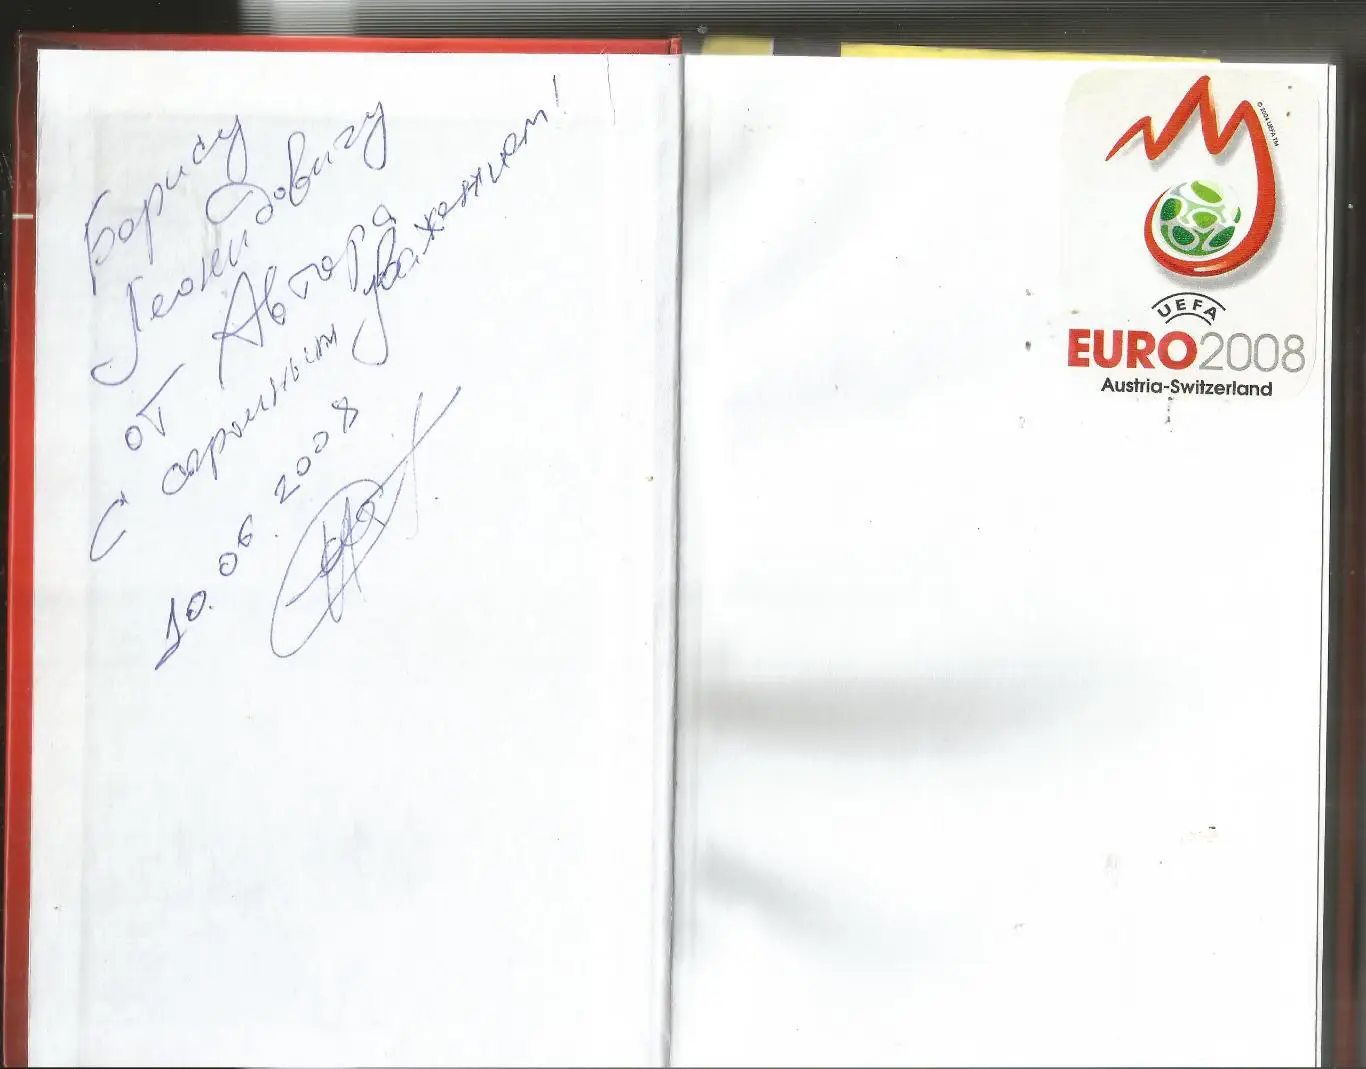 Борису
Леонидовичу
от Автора
с огромным уважением!
10.06.2008
© 2004 UEFA TM
UEFA
EURO2008
Austria-Switzerland